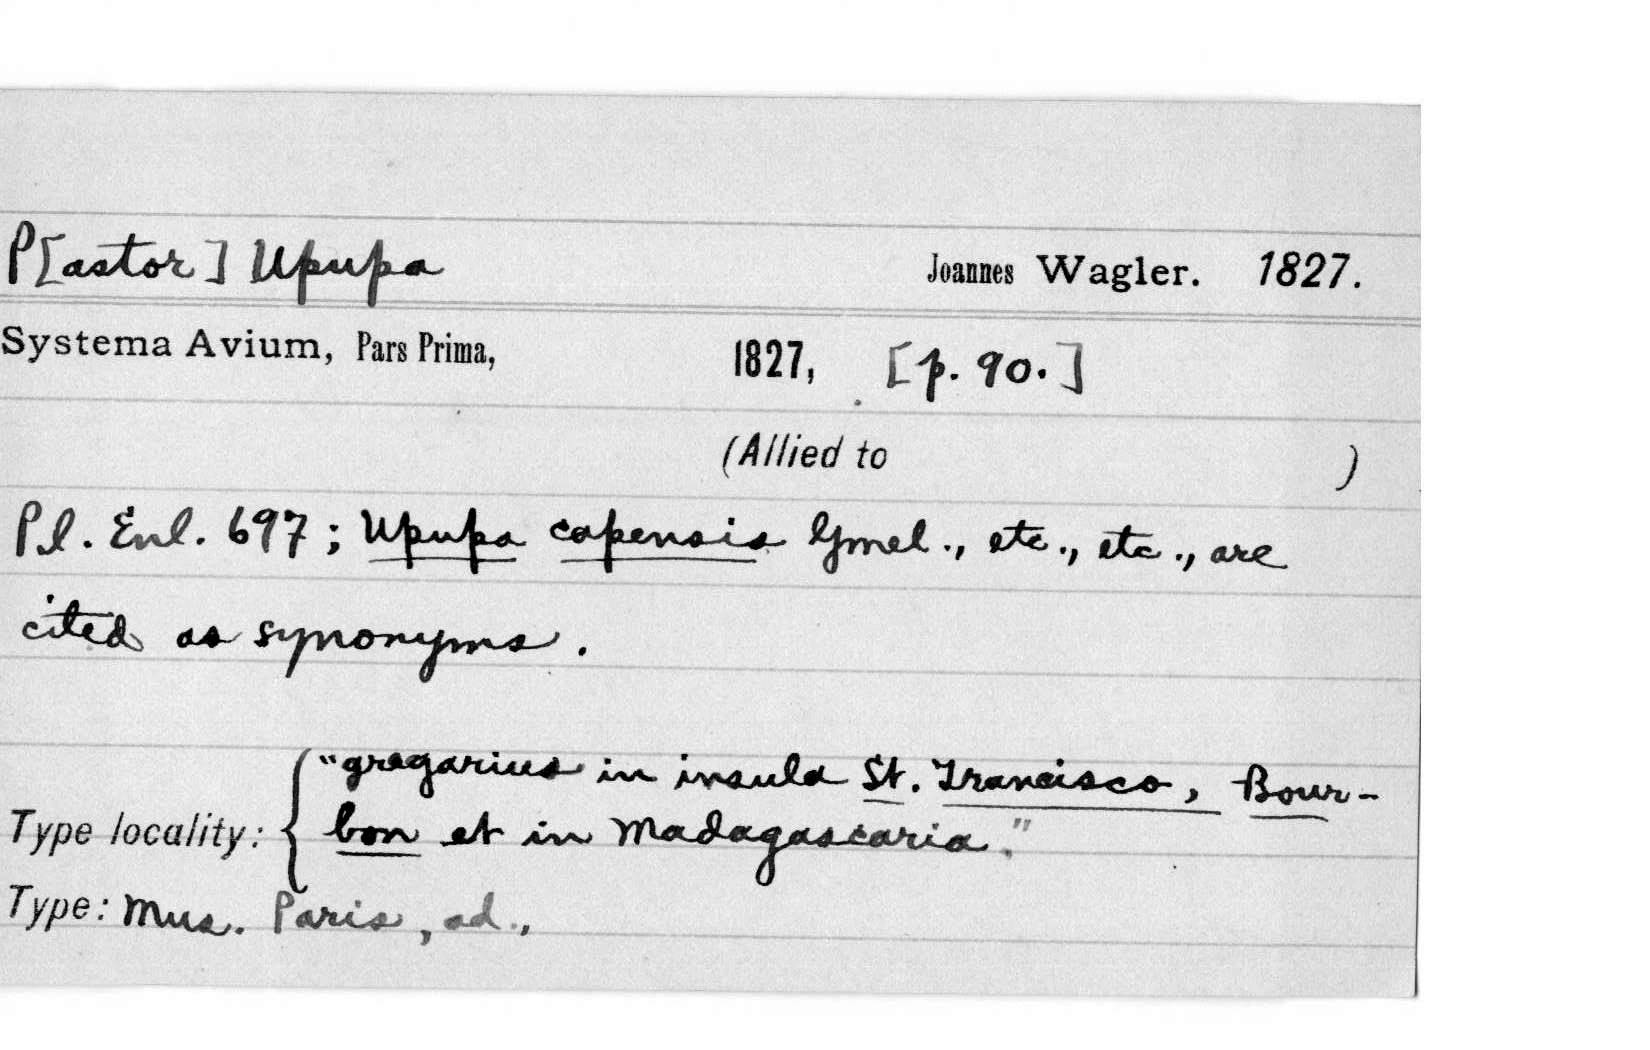 P[astor] Upupa Joannes Wagler. 1827.
Systema Avium, Pars Prima, 1827, [p. 90.]
(Allied to )
Pl. Enl. 697; Upupa capensis Gmel., etc., etc., are
cited as synonyms.
"gregarius in insula St. Francisco, Bour-
Type locality: { bon et in Madagascaria."
Type: Mus. Paris, ad.,